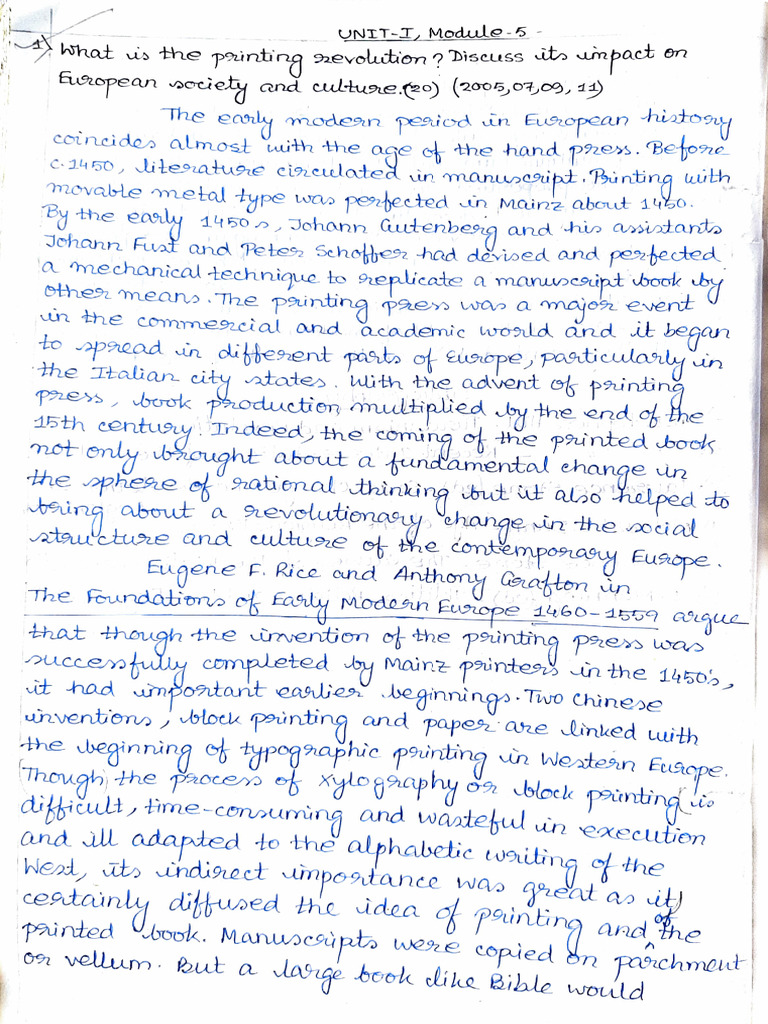 UNIT-I, Module-5
1) What is the printing revolution? Discuss its impact on
European society and culture.(20) (2005,07,09,11)
The early modern period in European history
coincides almost with the age of the hand press. Before
c.1450, literature circulated in manuscript. Printing with
movable metal type was perfected in Mainz about 1450.
By the early 1450s, Johann Gutenberg and his assistants
Johann Fust and Peter Schoffer had devised and perfected
a mechanical technique to replicate a manuscript book by
other means. The printing press was a major event
in the commercial and academic world and it began
to spread in different parts of Europe, particularly in
the Italian city states. With the advent of printing
press, book production multiplied by the end of the
15th century. Indeed, the coming of the printed book
not only brought about a fundamental change in
the sphere of rational thinking but it also helped to
bring about a revolutionary change in the social
structure and culture of the contemporary Europe.
Eugene F. Rice and Anthony Grafton in
The Foundations of Early Modern Europe 1460-1559 argue
that though the invention of the printing press was
successfully completed by Mainz printers in the 1450's,
it had important earlier beginnings. Two Chinese
inventions, block printing and paper are linked with
the beginning of typographic printing in Western Europe.
(Though) the process of xylography or block printing (is
difficult, time-consuming and wasteful in execution
and ill adapted to the alphabetic writing of the
West, its indirect importance was great as it)
certainly diffused the idea of printing and of the
printed book. Manuscripts were copied on parchment
or vellum. But a large book like Bible would